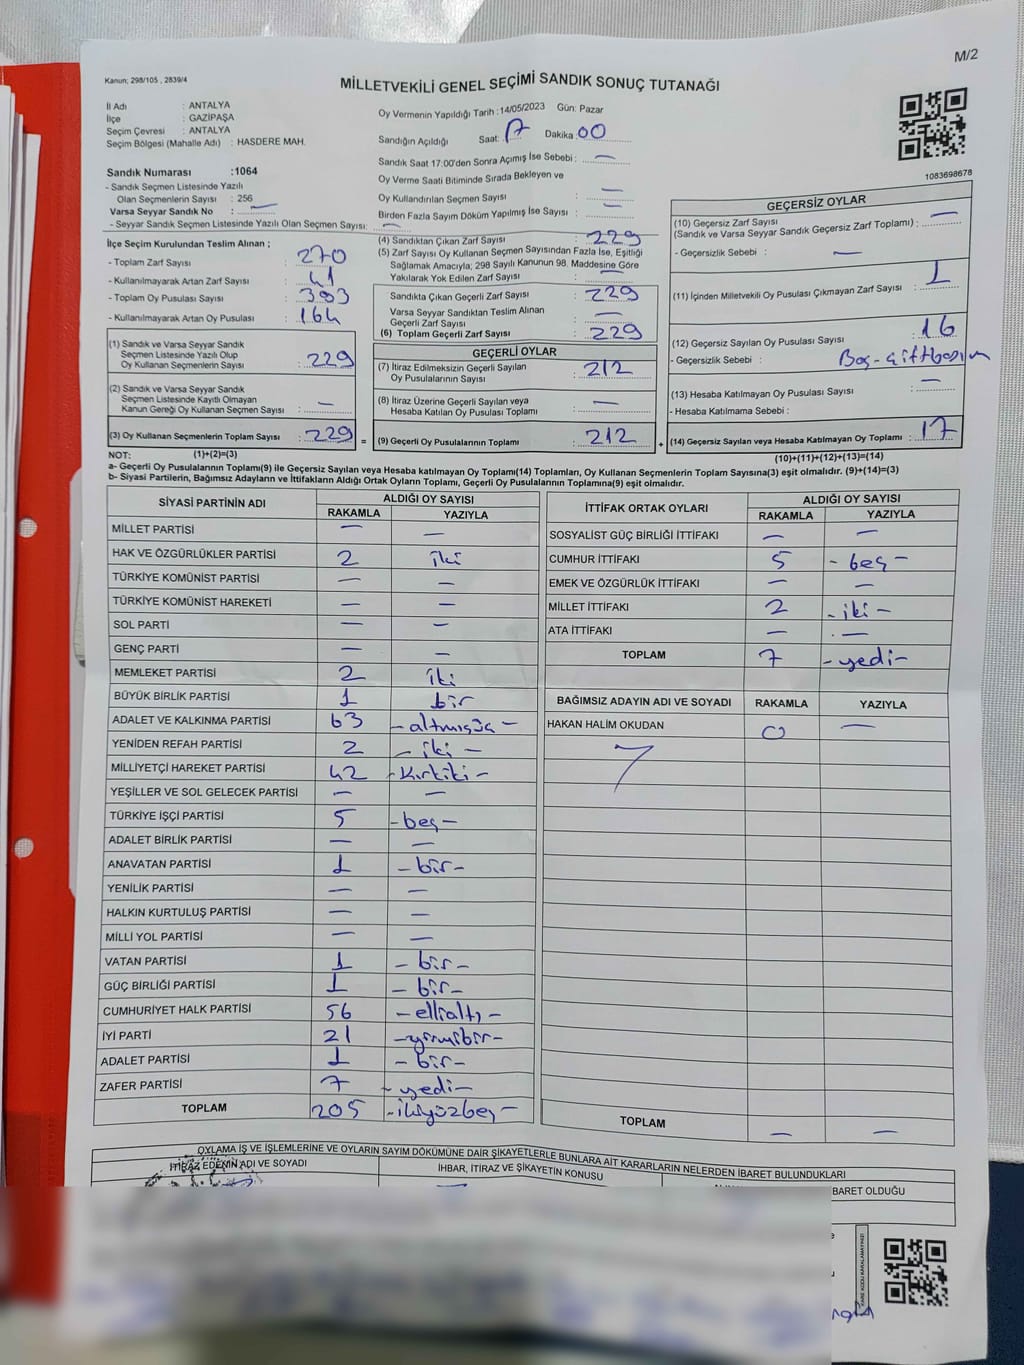 M/2
Kanun; 298/105 , 2839/4
MİLLETVEKİLİ GENEL SEÇİMİ SANDIK SONUÇ TUTANAĞI
İl Adı : ANTALYA
İlçe : GAZİPAŞA
Seçim Çevresi : ANTALYA
Seçim Bölgesi (Mahalle Adı) : HASDERE MAH.
Sandık Numarası :1064
- Sandık Seçmen Listesinde Yazılı
Olan Seçmenlerin Sayısı : 256
Varsa Seyyar Sandık No : —
- Seyyar Sandık Seçmen Listesinde Yazılı Olan Seçmen Sayısı: —
Oy Vermenin Yapıldığı Tarih :14/05/2023 Gün: Pazar
Sandığın Açıldığı Saat: 17 Dakika 00
Sandık Saat 17:00'den Sonra Açımış İse Sebebi : —
Oy Verme Saati Bitiminde Sırada Bekleyen ve
Oy Kullandırılan Seçmen Sayısı : —
Birden Fazla Sayım Döküm Yapılmış İse Sayısı : —
1083698678
İlçe Seçim Kurulundan Teslim Alınan ;
- Toplam Zarf Sayısı : 270
- Kullanılmayarak Artan Zarf Sayısı : 41
- Toplam Oy Pusulası Sayısı : 393
- Kullanılmayarak Artan Oy Pusulası : 164
(1) Sandık ve Varsa Seyyar Sandık
Seçmen Listesinde Yazılı Olup
Oy Kullanan Seçmenlerin Sayısı : 229
(2) Sandık ve Varsa Seyyar Sandık
Seçmen Listesinde Kayıtlı Olmayan
Kanun Gereği Oy Kullanan Seçmen Sayısı : —
(3) Oy Kullanan Seçmenlerin Toplam Sayısı : 229 =
(4) Sandıktan Çıkan Zarf Sayısı : 229
(5) Zarf Sayısı Oy Kullanan Seçmen Sayısından Fazla İse, Eşitliği
Sağlamak Amacıyla; 298 Sayılı Kanunun 98. Maddesine Göre
Yakılarak Yok Edilen Zarf Sayısı : —
Sandıkta Çıkan Geçerli Zarf Sayısı : 229
Varsa Seyyar Sandıktan Teslim Alınan
Geçerli Zarf Sayısı : —
(6) Toplam Geçerli Zarf Sayısı : 229
GEÇERLİ OYLAR
(7) İtiraz Edilmeksizin Geçerli Sayılan
Oy Pusulalarının Sayısı : 212
(8) İtiraz Üzerine Geçerli Sayılan veya
Hesaba Katılan Oy Pusulası Toplamı : —
(9) Geçerli Oy Pusulalarının Toplamı : 212 +
GEÇERSİZ OYLAR
(10) Geçersiz Zarf Sayısı
(Sandık ve Varsa Seyyar Sandık Geçersiz Zarf Toplamı) : —
- Geçersizlik Sebebi : —
(11) İçinden Milletvekili Oy Pusulası Çıkmayan Zarf Sayısı : 1
(12) Geçersiz Sayılan Oy Pusulası Sayısı : 16
- Geçersizlik Sebebi : Boş-çiftbasım
(13) Hesaba Katılmayan Oy Pusulası Sayısı : —
- Hesaba Katılmama Sebebi :
(14) Geçersiz Sayılan veya Hesaba Katılmayan Oy Toplamı : 17
NOT: (1)+(2)=(3)
(10)+(11)+(12)+(13)=(14)
a- Geçerli Oy Pusulalarının Toplamı(9) ile Geçersiz Sayılan veya Hesaba katılmayan Oy Toplamı(14) Toplamları, Oy Kullanan Seçmenlerin Toplam Sayısına(3) eşit olmalıdır. (9)+(14)=(3)
b- Siyasi Partilerin, Bağımsız Adayların ve İttifakların Aldığı Ortak Oyların Toplamı, Geçerli Oy Pusulalarının Toplamına(9) eşit olmalıdır.
SİYASİ PARTİNİN ADI ALDIĞI OY SAYISI
RAKAMLA YAZIYLA
MİLLET PARTİSİ — —
HAK VE ÖZGÜRLÜKLER PARTİSİ 2 iki
TÜRKİYE KOMÜNİST PARTİSİ — —
TÜRKİYE KOMÜNİST HAREKETİ — —
SOL PARTİ — —
GENÇ PARTİ — —
MEMLEKET PARTİSİ 2 iki
BÜYÜK BİRLİK PARTİSİ 1 bir
ADALET VE KALKINMA PARTİSİ 63 -altmışüç-
YENİDEN REFAH PARTİSİ 2 - iki -
MİLLİYETÇİ HAREKET PARTİSİ 42 -Kırkiki-
YEŞİLLER VE SOL GELECEK PARTİSİ — —
TÜRKİYE İŞÇİ PARTİSİ 5 -beş-
ADALET BİRLİK PARTİSİ — —
ANAVATAN PARTİSİ 1 -bir-
YENİLİK PARTİSİ — —
HALKIN KURTULUŞ PARTİSİ — —
MİLLİ YOL PARTİSİ — —
VATAN PARTİSİ 1 -bir-
GÜÇ BİRLİĞİ PARTİSİ 1 -bir-
CUMHURİYET HALK PARTİSİ 56 -ellialtı-
İYİ PARTİ 21 -yirmibir-
ADALET PARTİSİ 1 -bir-
ZAFER PARTİSİ 7 -yedi-
TOPLAM 205 -ikiyüzbeş-
İTTİFAK ORTAK OYLARI ALDIĞI OY SAYISI
RAKAMLA YAZIYLA
SOSYALİST GÜÇ BİRLİĞİ İTTİFAKI — —
CUMHUR İTTİFAKI 5 -beş-
EMEK VE ÖZGÜRLÜK İTTİFAKI — —
MİLLET İTTİFAKI 2 -iki-
ATA İTTİFAKI — —
TOPLAM 7 -yedi-
BAĞIMSIZ ADAYIN ADI VE SOYADI RAKAMLA YAZIYLA
HAKAN HALİM OKUDAN 0 —
TOPLAM — —
OYLAMA İŞ VE İŞLEMLERİNE VE OYLARIN SAYIM DÖKÜMÜNE DAİR ŞİKAYETLERLE BUNLARA AİT KARARLARIN NELERDEN İBARET BULUNDUKLARI
İTİRAZ EDENİN ADI VE SOYADI İHBAR, İTİRAZ VE ŞİKAYETİN KONUSU BARET OLDUĞU